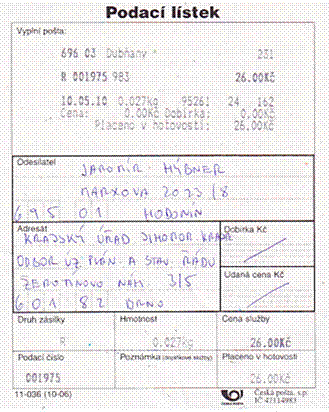 Podací lístek
Vyplní pošta:
696 03 Dubňany * 231
R 001975 983 26.00Kč
10.05.10 0.027kg 95261 24 162
Cena: 0.00Kč Dobírka: 0.00Kč
Placeno v hotovosti: 26.00Kč
Odesílatel
JAROMÍR HÝBNER
MARXOVA 2023/8
695 01 HODONÍN
Adresát
Dobírka Kč
KRAJSKÝ ÚŘAD JIHOMOR. KRAJE
ODBOR ÚZ. PLÁN. A STAV. ŘÁDU
Udaná cena Kč
ŽEROTÍNOVO NÁM. 3/5
601 82 BRNO
Druh zásilky Hmotnost Cena služby
R 0.027kg 26.00Kč
Podací číslo Poznámka (doplňkové služby) Placeno v hotovosti
001975 26.00Kč
11-036 (10-06) ČESKÁ POŠTA Česká pošta, s.p.
IČ 47114983